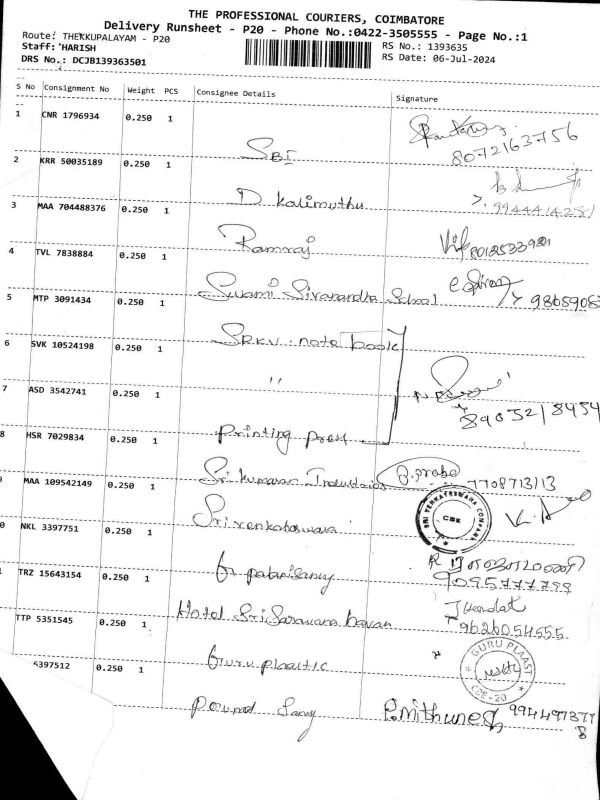 THE PROFESSIONAL COURIERS, COIMBATORE
Delivery Runsheet - P20 - Phone No.:0422-3505555 - Page No.:1
Route: THEKKUPALAYAM - P20
RS No.: 1393635
Staff: HARISH
RS Date: 06-Jul-2024
DRS No.: DCJB139363501
S No Consignment No Weight PCS Consignee Details Signature
1 CNR 1796934 0.250 1
SBI
8072163756
2 KRR 50035189 0.250 1
D Kalimuthu
3 MAA 704488376 0.250 1
Ramraj
4 TVL 7838884 0.250 1
Swami Sivanandha School
5 MTP 3091434 0.250 1
SRKV note book
6 SVK 10524198 0.250 1
"
7 ASD 3542741 0.250 1
Printing press
8 HSR 7029834 0.250 1
Sri Kumaran Industries
7708713113
MAA 109542149 0.250 1
Sri venkateswara
SRI VENKATESWARA COMPANY
CBE
0 NKL 3397751 0.250 1
9095777799
TRZ 15643154 0.250 1
Hotel Sri Saravana bavan
9626054555
TTP 5351545 0.250 1
Guru plaastic
GURU PLAAST
CBE-20
6397512 0.250 1
P.Mithunesh